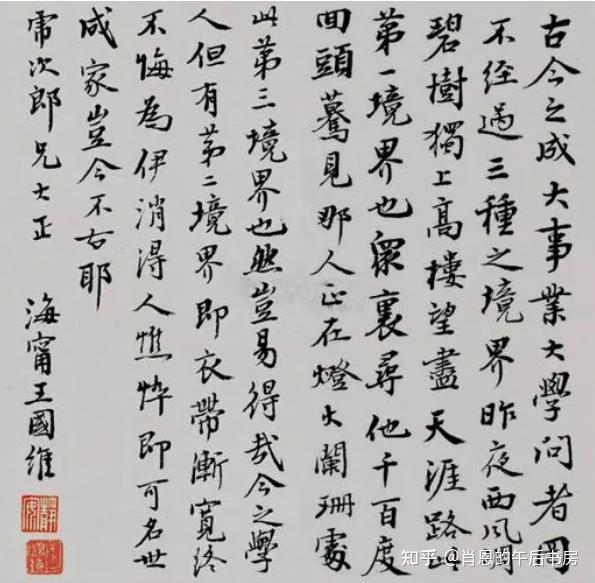 古今之成大事業大學問者罔
不經過三種之境界昨夜西風凋
碧樹獨上高樓望盡天涯路此
第一境界也眾裏尋他千百度
回頭驀見那人正在燈火闌珊處
此第三境界也然豈易得哉今之學
人但有第二境界即衣帶漸寬終
不悔為伊消得人憔悴即可名世
成家豈今不古耶
乕次郎兄大正
海甯王國維
靜安
知乎 @肖恩的午后书房